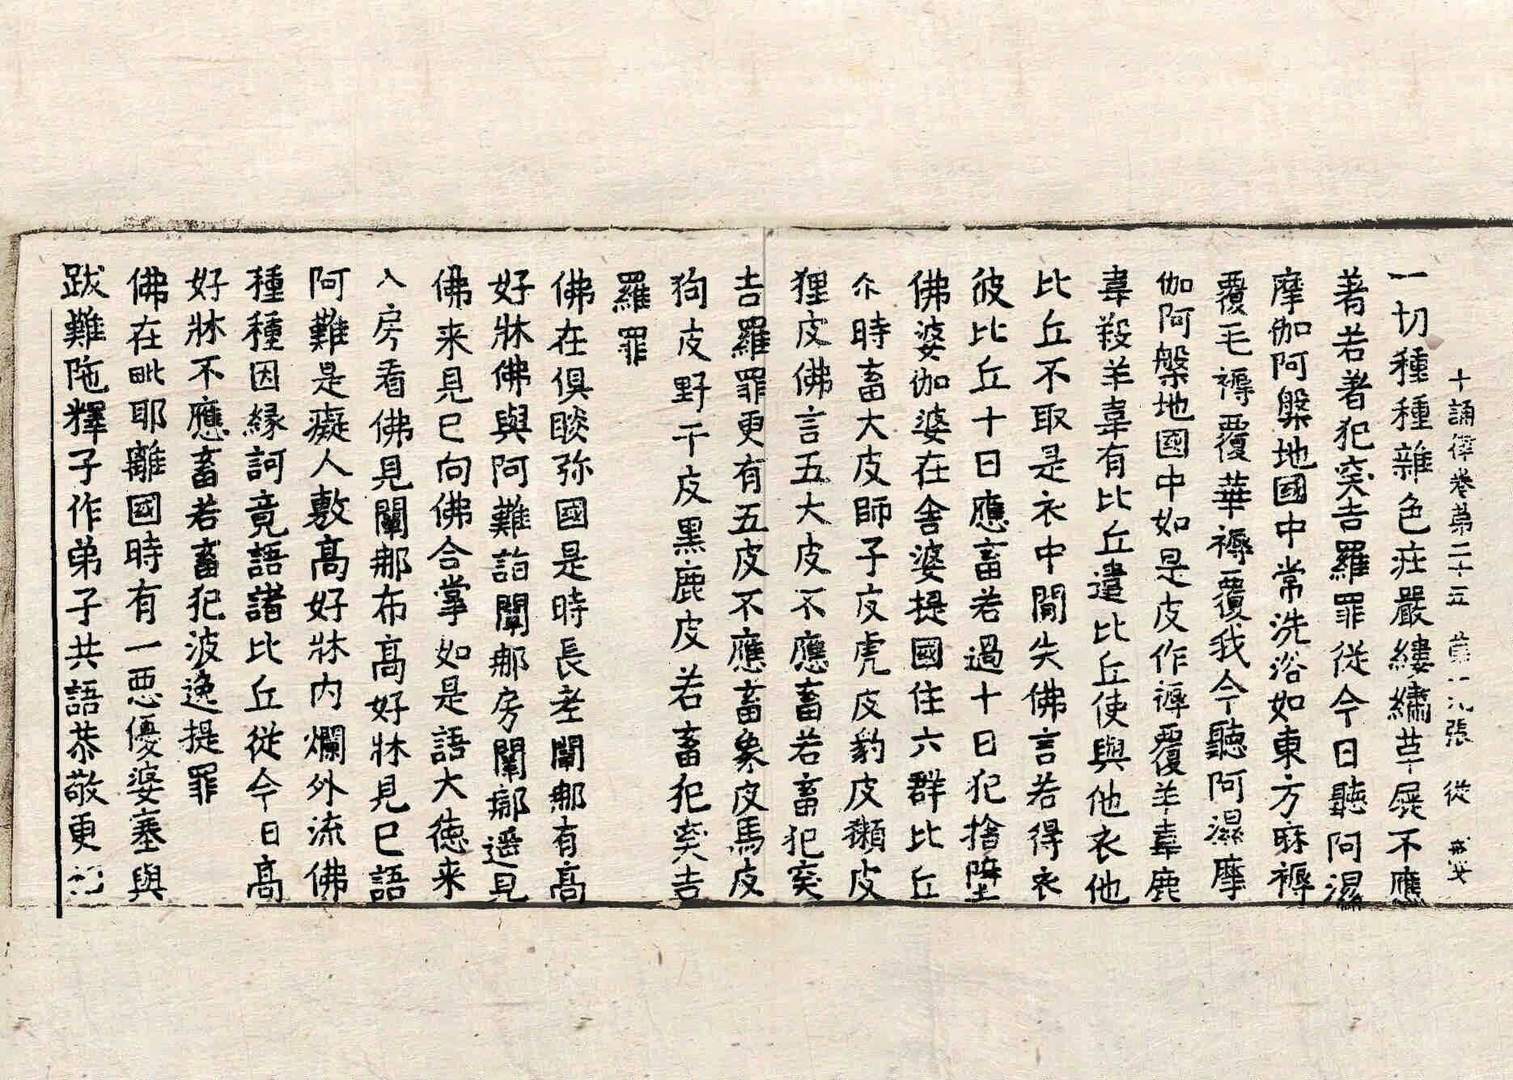 十誦律卷苐二十五 苐 張 從
一切種種雜色莊嚴縷繡草屣不應
著若著犯突吉羅罪從今日聽阿濕
摩伽阿槃地國中常洗浴如東方麻褥
覆毛褥覆華褥覆我今聽阿濕摩
伽阿槃地國中如是皮作褥覆羊韋鹿
韋羖羊韋有比丘遣比丘使與他衣他
比丘不取是衣中間失佛言若得衣
彼比丘十日應畜若過十日犯捨墮
佛婆伽婆在舍婆提國住六群比丘
尒時畜大皮師子皮虎皮豹皮獺皮
狸皮佛言五大皮不應畜若畜犯突
吉羅罪更有五皮不應畜象皮馬皮
狗皮野干皮黑鹿皮若畜犯突吉
羅罪
佛在俱睒弥國是時長老闡那有高
好牀佛與阿難詣闡那房闡那遥見
佛来見已向佛合掌如是語大德来
入房看佛見闡那布高好牀見已語
阿難是癡人敷高好牀内爛外流佛
種種因緣訶竟語諸比丘從今日高
好牀不應畜若畜犯波逸提罪
佛在毗耶離國時有一惡優婆塞與
跋難陁釋子作弟子共語恭敬更